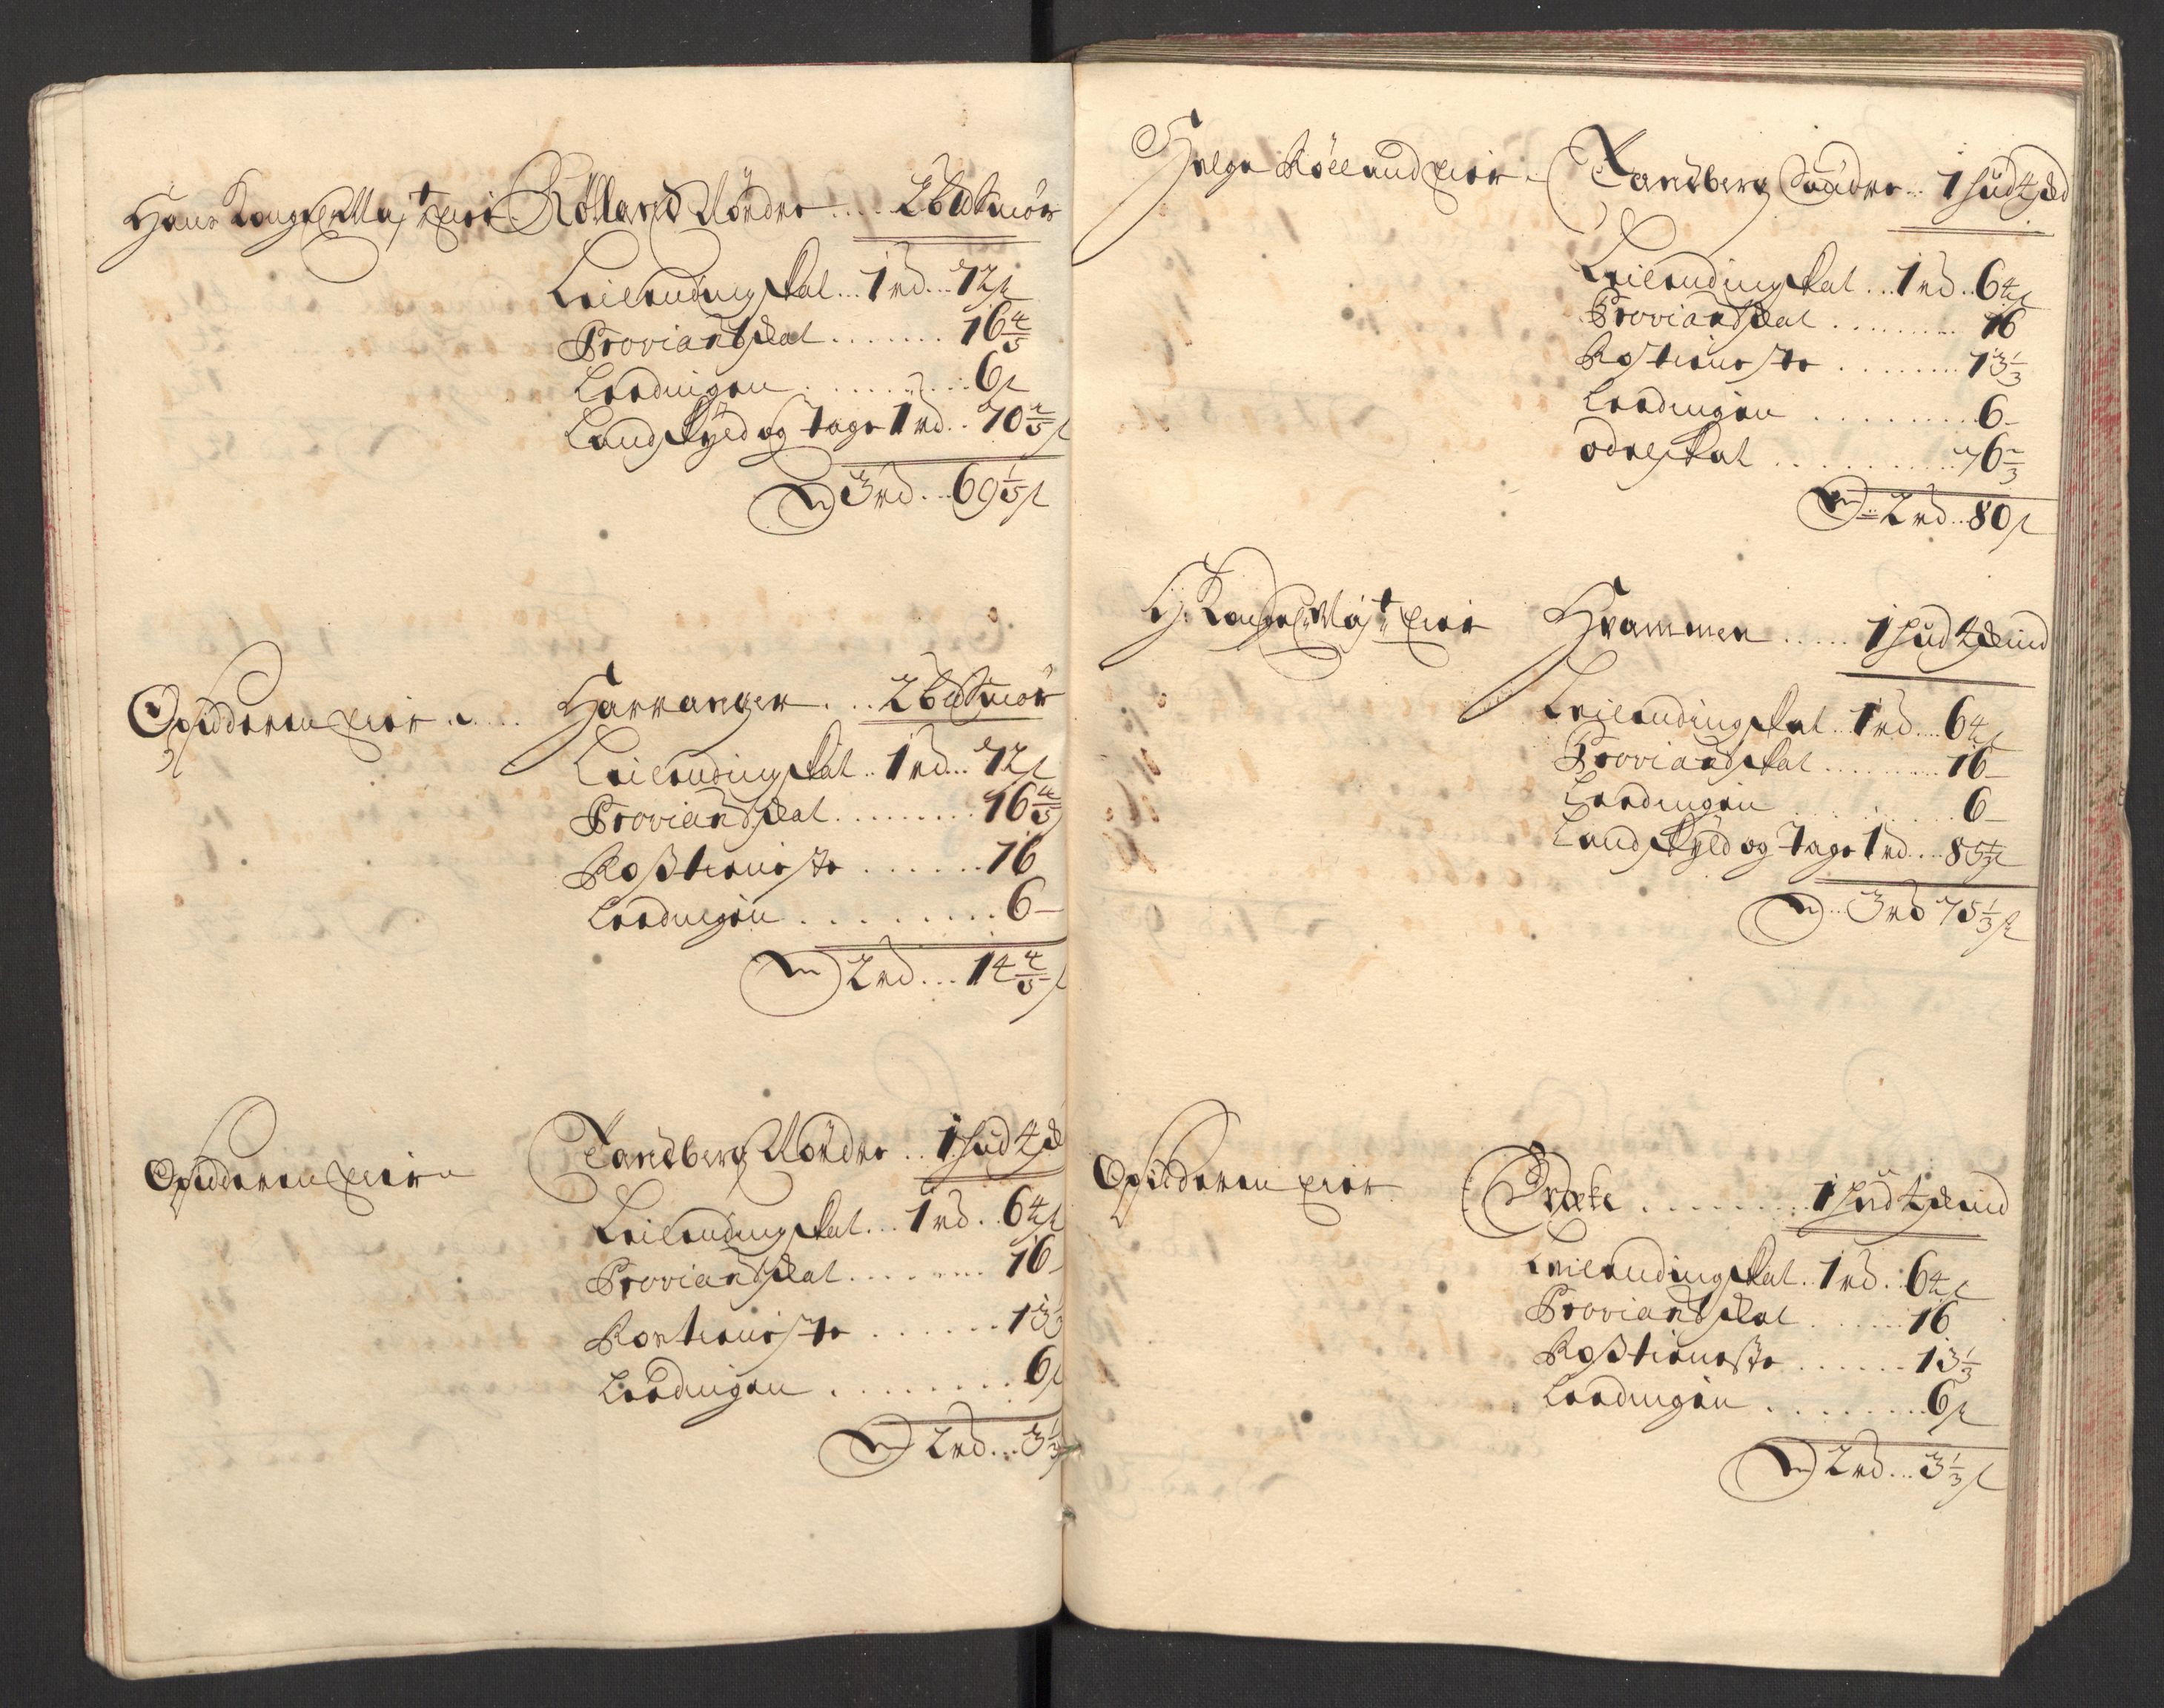 Hans Kongel: Maj:t eier Rölland Nördre .... 2 bd Smör
Leilendingskat ... 1 rd ... 72 s
Proviantskat ....... 16 4/5
Leedingen ........... 6 s
Landskyld og tage 1 rd .. 70 2/5 s
3 rd ... 69 1/5 s
Opsidderen eier ..... Harranger ... 2 bd Smör
Leilendingskat .. 1 rd ... 72 s
Proviantskat ......... 16 4/5
Roßtieniste ....... 16
Leedingen ......... 6
2 rd ... 14 4/5 s
Opsidderen eier Tandberg Nördre .. 1 hud 4 sk
Leilendingskat ... 1 rd .. 64 s
Proviantskat ........ 16
Rostieniste ...... 13 1/3
Leedingen ......... 6 s
2 rd ... 3 1/3 s
Helge Rölland eier Tandberg Söndre .. 1 hud 4 sk
Leilendingskat ... 1 rd .. 64 s
Proviantskat ......... 16
Rostieniste ........ 13 1/3
Leedingen ......... 6
odelskat .......... 76 2/3
2 rd .. 80 s
H: Kongel: Maj:t eier Hvammen ..... 1 hud 4 skind
Leilendingskat .. 1 rd ... 64 s
Proviantskat ......... 16
Leedingen ......... 6
Landskyld og tage 1 rd ... 85 1/3 s
3 rd 75 1/3 s
Opsidderen eier Bræke ......... 1 hud 4 skind
Leilendingskat .. 1 rd .. 64 s
Proviantskat ...... 16
Roßtieniste ...... 13 1/3
Leedingen ........ 6 s
2 rd ... 3 1/3 s